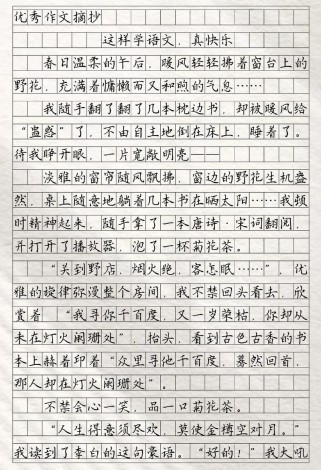 优秀作文摘抄
这样学语文，真快乐
春日温柔的午后，暖风轻轻拂着窗台上的
野花，充满着慵懒而又和煦的气息……
我随手翻了翻了几本枕边书，却被暖风给
“蛊惑”了，不由自主地倒在床上，睡着了。
待我睁开眼，一片宽敞明亮——
淡雅的窗帘随风飘拂，窗边的野花生机盎
然，桌上随意地躺着几本书在晒太阳……我顿
时精神起来，随手拿了一本唐诗·宋词翻阅，
并打开了播放器，泡了一杯菊花茶。
“关到野店，烟火绝，客怎眠……”，优
雅的旋律弥漫整个房间，我不禁回头看去，欣
赏着“我寻你千百度，又一岁荣枯，你却从
未在灯火阑珊处”，抬头，看到古色古香的书
本上赫着印着“众里寻他千百度，蓦然回首，
那人却在灯火阑珊处”。
不禁会心一笑，品一口菊花茶。
“人生得意须尽欢，莫使金樽空对月。”
我读到了李白的这句豪语。“好的！”我大吼